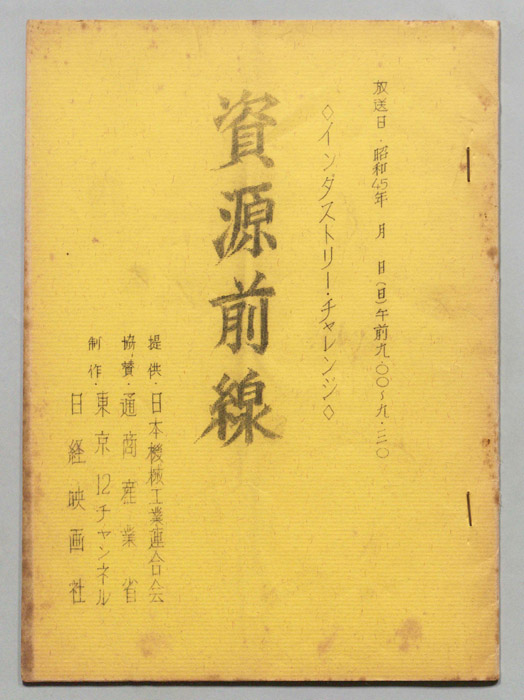 放送日・昭和45年　月　日(日)午前九・〇〇〜九・三〇
◇インダストリー・チャレンジ◇
資源前線
提供・日本機械工業連合会
協賛・通商産業省
制作・東京12チャンネル
日経映画社